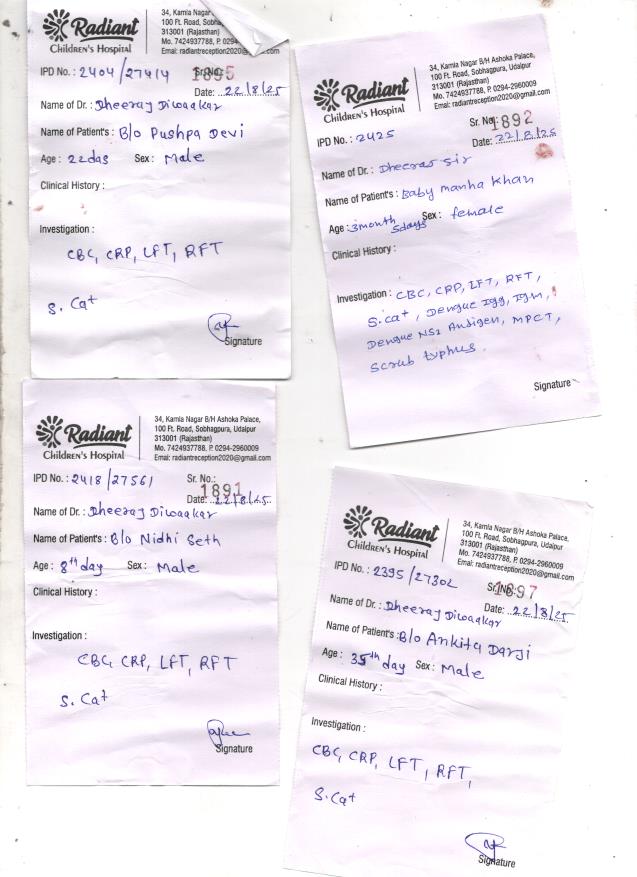 Radiant
Children's Hospital
34, Kamla Nagar
100 Ft. Road, Sobha
313001 (Rajasthan)
Mo. 7424937788, P. 0294-
Email: radiantreception2020@gmail
IPD No. : 2404/27414
1895
Date: 22/8/25
Name of Dr : Dheeraj Diwaakar
Name of Patient's : B/o Pushpa Devi
Age : 22das Sex : Male
Clinical History :
Investigation :
CBC, CRP, LFT, RFT
S. Ca+
Signature
Radiant
Children's Hospital
34, Kamla Nagar B/H Ashoka Palace,
100 Ft. Road, Sobhagpura, Udaipur
313001 (Rajasthan)
Mo. 7424937788, P. 0294-2960009
Email: radiantreception2020@gmail.com
IPD No. : 2425
Sr. No.: 1892
Date: 22/8/25
Name of Dr. : Dheeraj Sir
Name of Patient's : Baby manha Khan
Age : 3month 5days Sex : female
Clinical History :
Investigation : CBC, CRP, LFT, RFT,
S.ca+, Dengue Igg, Igm,
Dengue NS1 Antigen, MPCT,
Scrub typhus.
Signature
Radiant
Children's Hospital
34, Kamla Nagar B/H Ashoka Palace,
100 Ft. Road, Sobhagpura, Udaipur
313001 (Rajasthan)
Mo. 7424937788, P. 0294-2960009
Email: radiantreception2020@gmail.com
IPD No. : 2418/27561
Sr. No.:
1891
Date: 22/8/25
Name of Dr : Dheeraj Diwaakar
Name of Patient's : B/o Nidhi Seth
Age : 8th day Sex : Male
Clinical History :
Investigation :
CBC, CRP, LFT, RFT
S. Ca+
Signature
Radiant
Children's Hospital
34, Kamla Nagar B/H Ashoka Palace,
100 Ft. Road, Sobhagpura, Udaipur
313001 (Rajasthan)
Mo. 7424937788, P. 0294-2960009
Email: radiantreception2020@gmail.com
IPD No. : 2395/27302
Sr. No.: 1897
Date: 22/8/25
Name of Dr. : Dheeraj Diwaakar
Name of Patient's : B/o Ankita Darji
Age : 35th day Sex : Male
Clinical History :
Investigation :
CBC, CRP, LFT, RFT,
S.Ca+
Signature